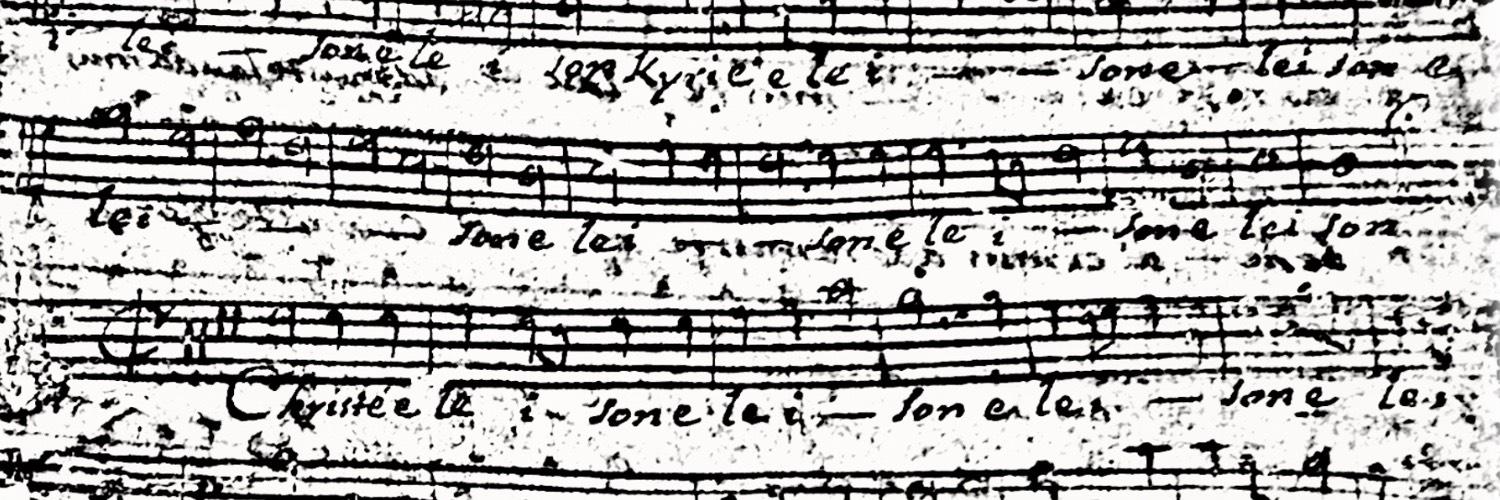 les sone le i son Kyrie e le i sone lei son e
lei sone lei sone le i sone lei son
Christe e le i sone le i son e lei sone lei